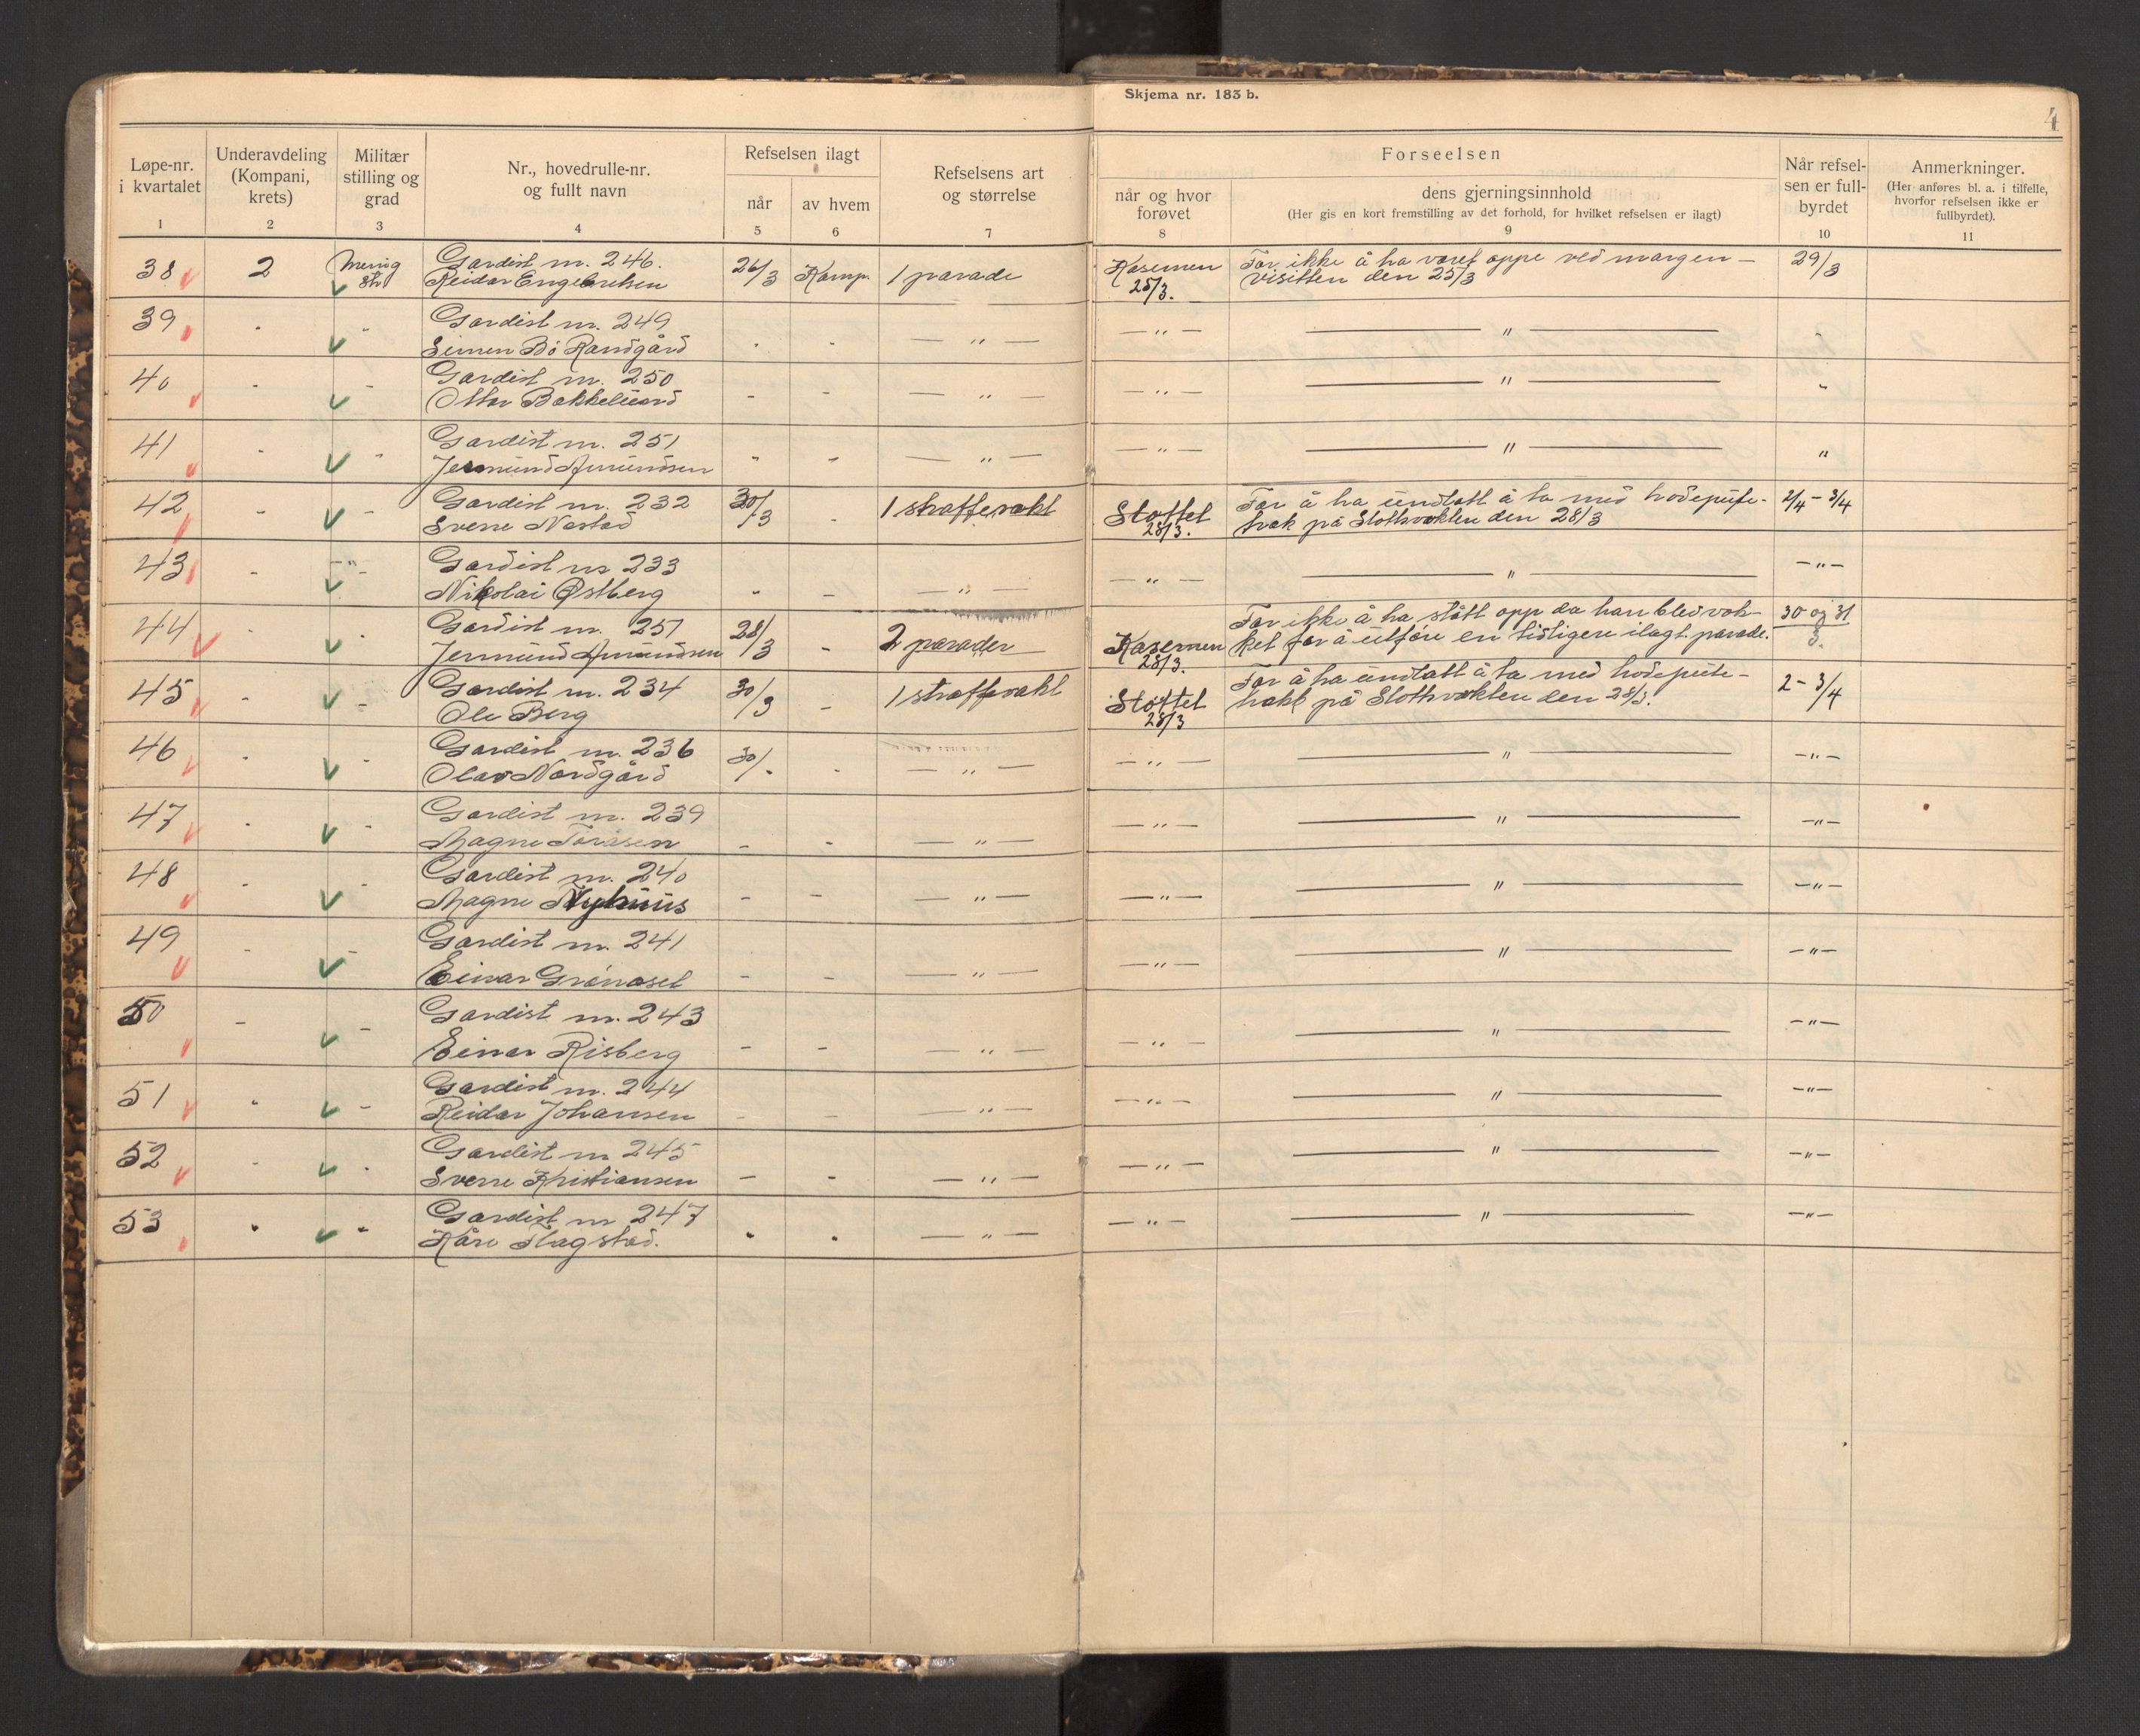 Skjema nr. 183 b.
4
Løpe-nr. i kvartalet
1
Underavdeling (Kompani, krets)
2
Militær stilling og grad
3
Nr., hovedrulle-nr. og fullt navn
4
Refselsen ilagt
når
5
av hvem
6
Refselsens art og størrelse
7
Forseelsen
når og hvor forøvet
8
dens gjerningsinnhold
(Her gis en kort fremstilling av det forhold, for hvilket refselsen er ilagt)
9
Når refsel-
sen er full-
byrdet
10
Anmerkninger.
(Her anføres bl. a. i tilfelle, hvorfor refselsen ikke er fullbyrdet).
11
38 2 Menig Gardist nr. 246. 26/3 Komp. 1 parade Kasernen For ikke å ha været oppe ved morgen- 29/3
Reidar Engebretsen 25/3. visitten den 25/3
39 " " Gardist nr. 249
Simen Bö Randgård - - — " — — " — — " — "
40 " " Gardist nr. 250
Ottar - - — " — — " — — " — "
41 " " Gardist nr. 251
Jermund Amundsen " - — " — — " — — " — "
42 " - Gardist nr. 232 30/3 - 1 straffevakt Slottet For å ha undlatt å ta med hodepute- 2/4 - 3/4
Sverre Nastad 28/3. trek på Slottsvakten den 28/3
43 - — " — Gardist nr 233
Nikolai Østberg - - — " — — " — — " — — " —
44 " - Gardist nr. 251 28/3 - 2 parader Kasernen For ikke å ha stått opp da han blev vek- 30 og 31
Jermund Amundsen 28/3. ket for å utføre en tidligere ilagt parade. 3.
45 - - Gardist nr. 234 30/3 - 1 straffevakt Slottet For å ha undlatt å ta med hodepute- 2 - 3/4
Ole Berg 28/3 trekk på Slottsvakten den 28/3.
46 - - Gardist nr. 236 30/- -
Olav Nordgård — " — — " — — " — — " —
47 - - Gardist nr. 239
Magne - - — " — — " — — " — — " —
48 - - Gardist nr. 240
Magne Nyhuus - - — " — — " — — " — — " —
49 - - Gardist nr. 241
Einar Grönasel - - — " — — " — — " — — " —
50 - - Gardist nr. 243
Einar Risberg - - — " — — " — — " — — " —
51 " - Gardist nr. 244
Reidar Johansen - - — " — — " — — " — — " —
52 - - Gardist nr 245
Sverre Kristiansen - - — " — — " — — " — — " —
53 " " Gardist nr 247
Kåre Flagstad. " " — " — — " — — " — — " —